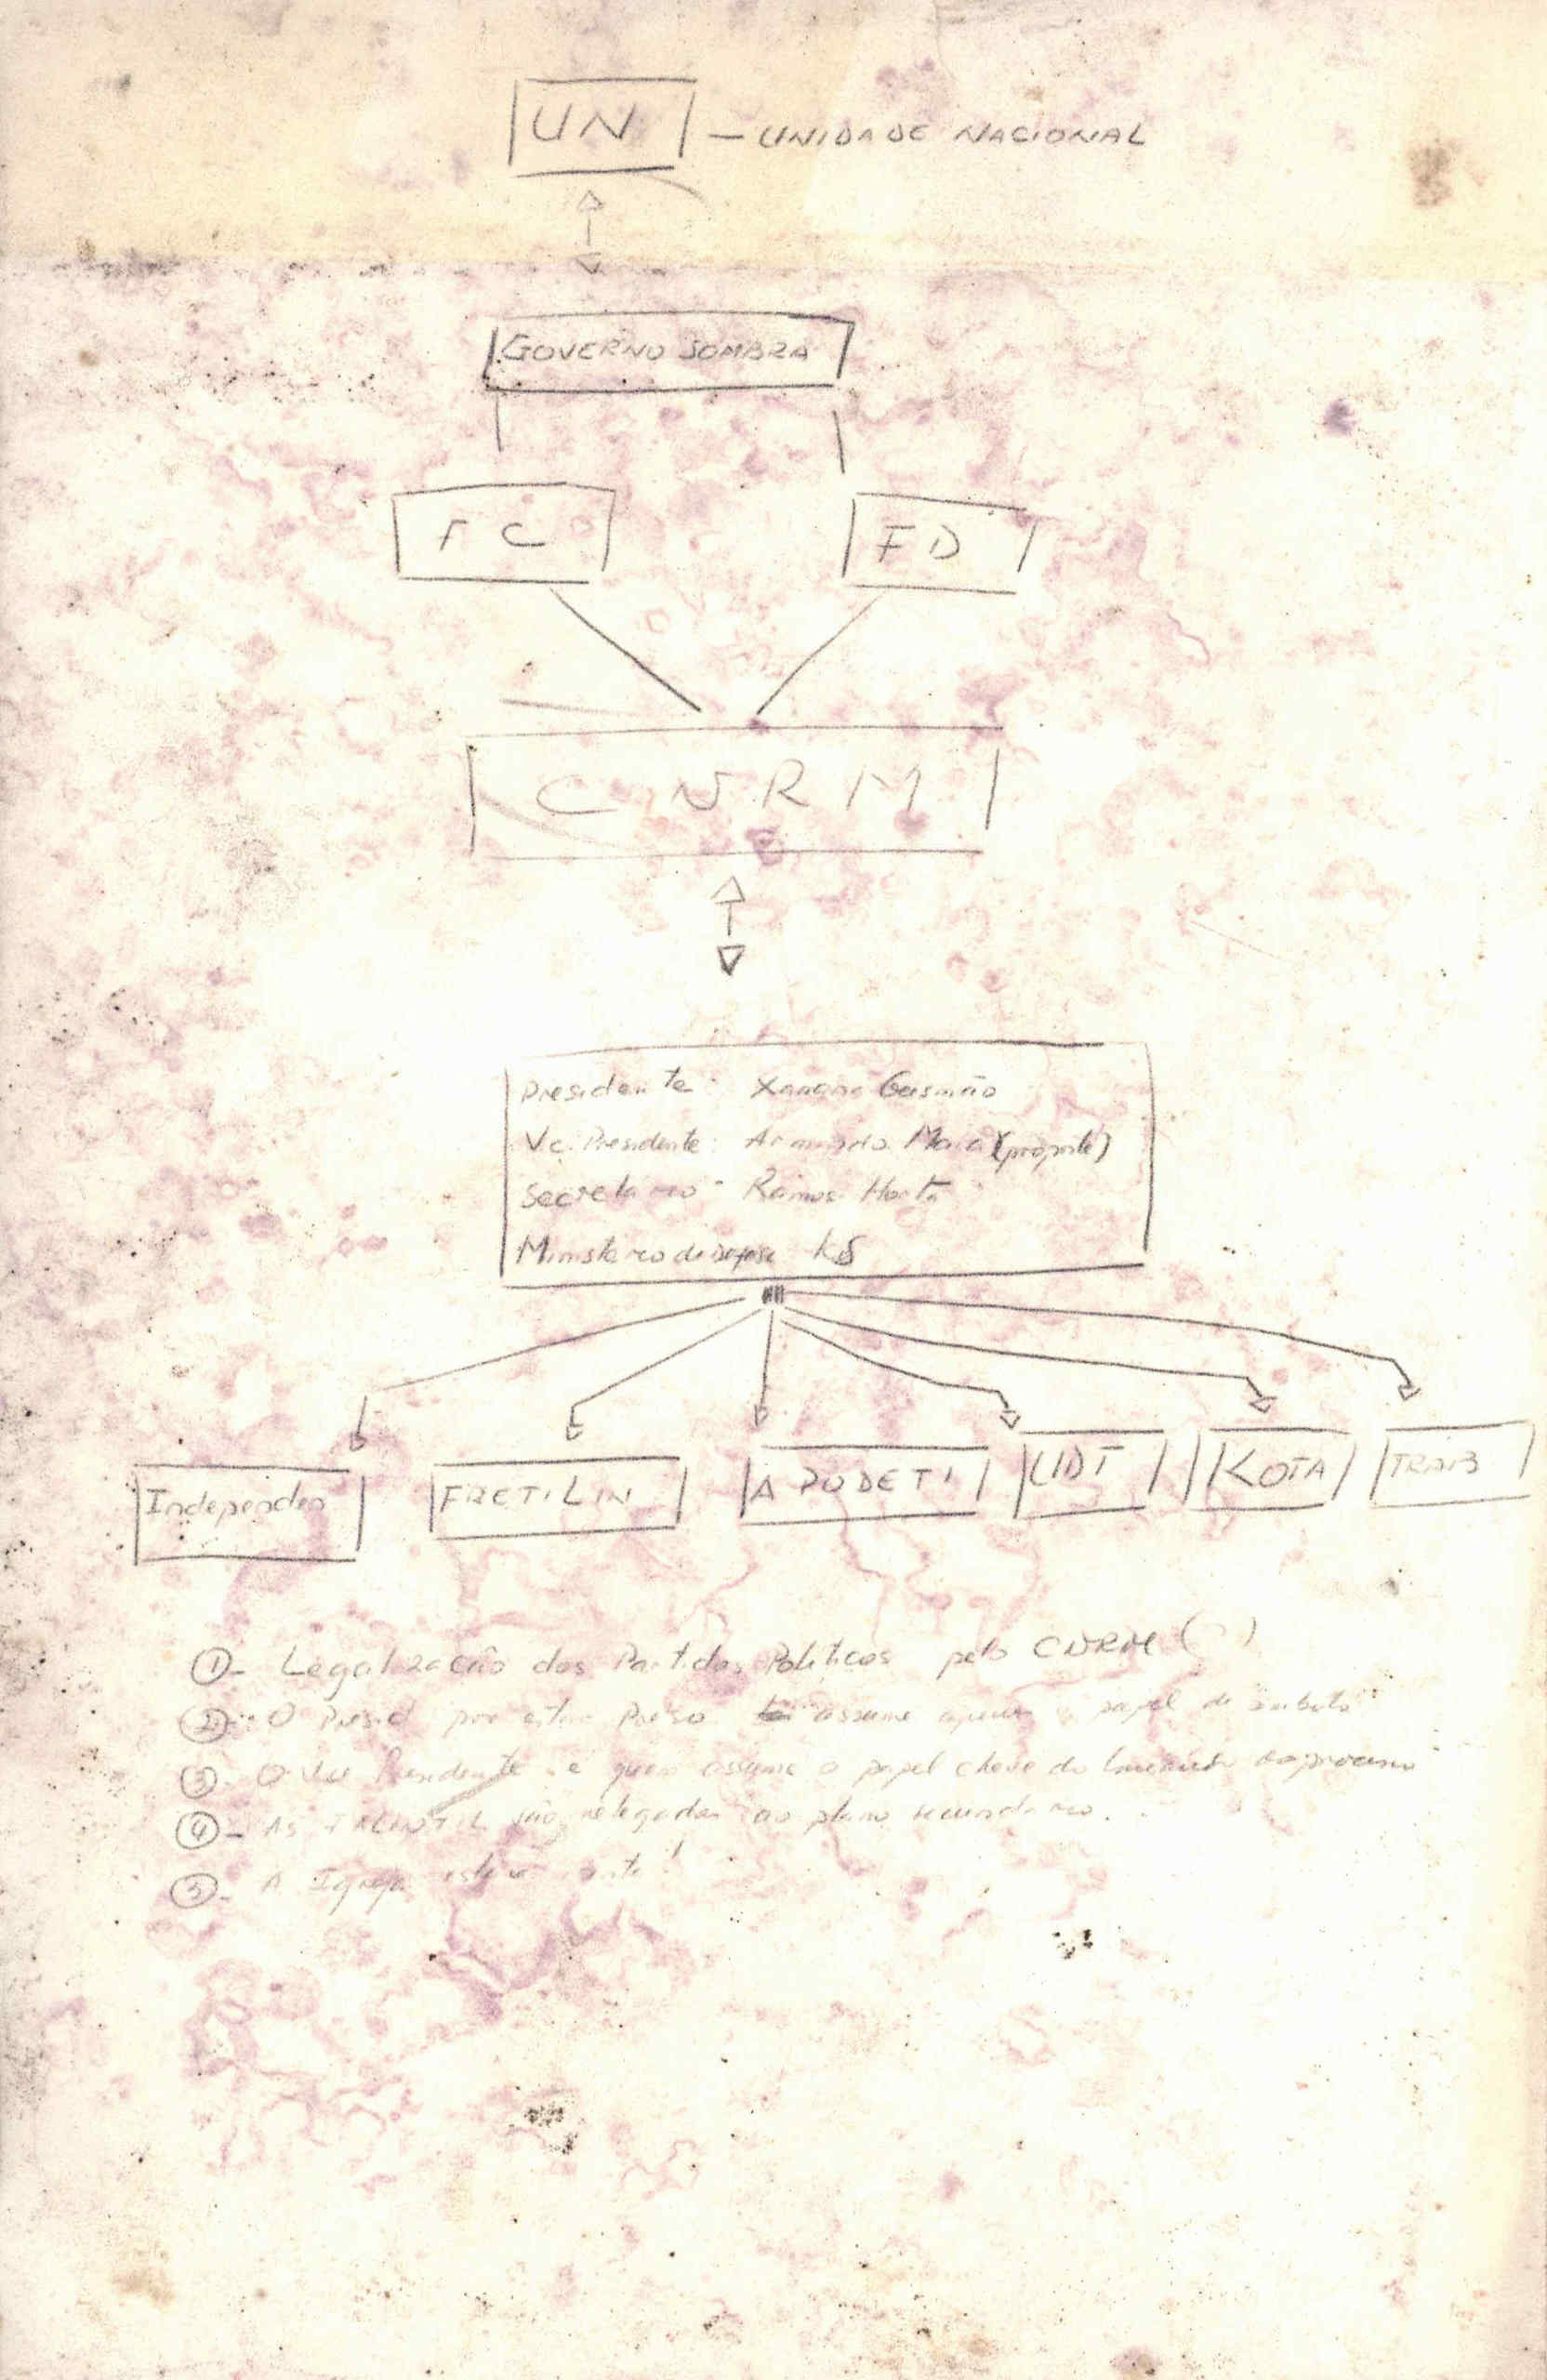 UN – UNIDADE NACIONAL
GOVERNO SOMBRA
FC
FD
CNRM
Presidente: Xanana Gusmão
Vc. Presidente: Armindo Maia (proposto)
Secretario: Ramos Horta
Ministerio de Defesa KS
Independen
FRETILIN
APODETI
UDT
KOTA
TRAB
① - Legalização dos Partidos Politicos pelo CNRM ( )
② - O Presid por estar Preso assume apenas o papel de
③ - O Vce Presidente e quem assume o papel chave do processo
④ - As FALINTIL são relegadas ao plano secundario.
⑤ - A Igreja